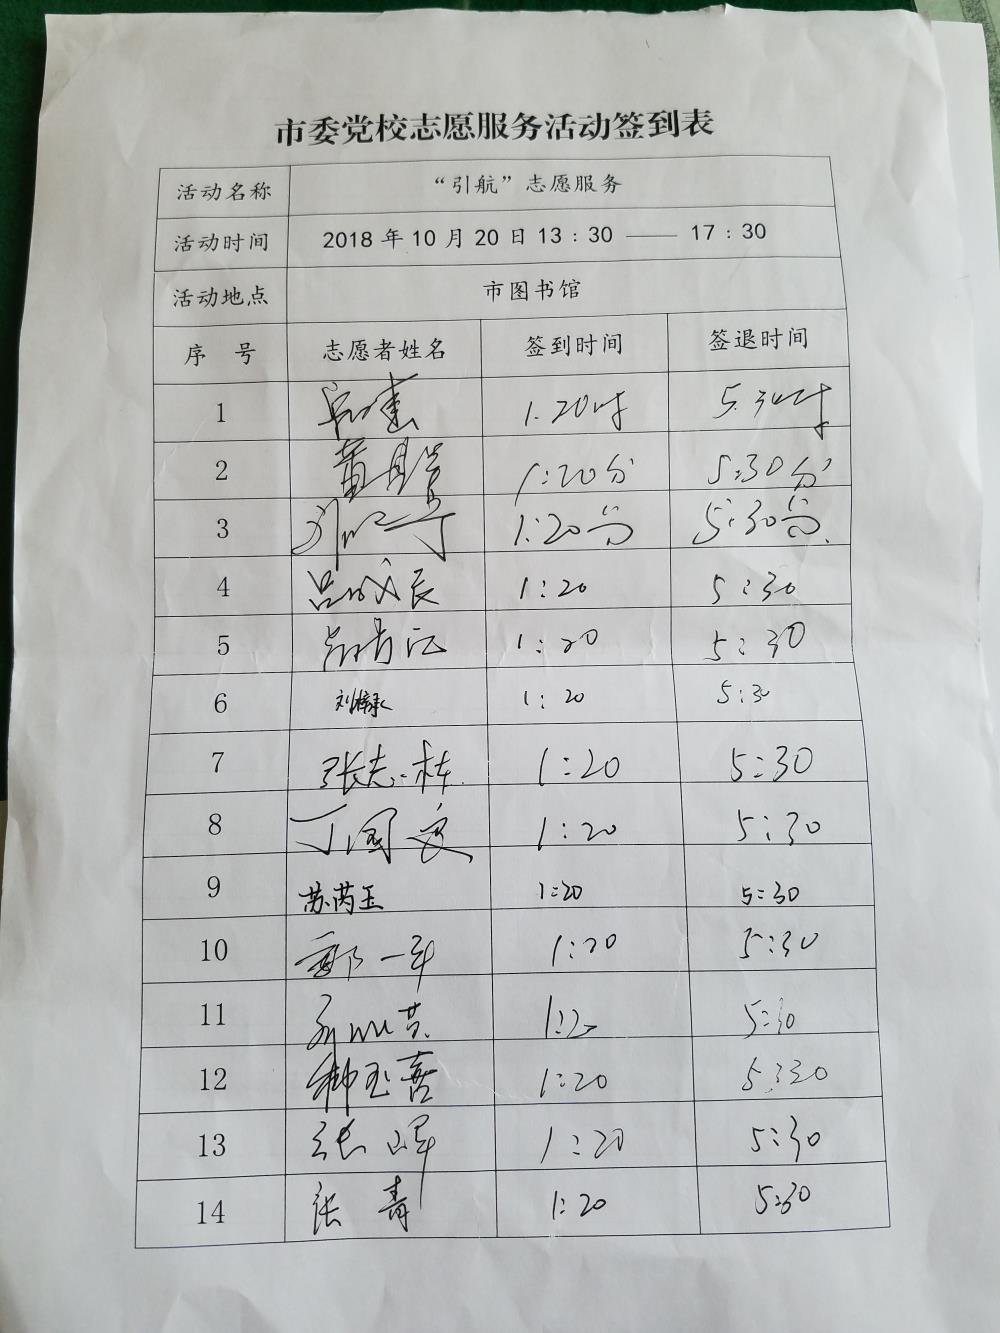 市委党校志愿服务活动签到表
活动名称 “引航”志愿服务
活动时间 2018年10月20日13:30——17:30
活动地点 市图书馆
序 号 志愿者姓名 签到时间 签退时间
1 1.20
2 1:20分 5:30分
3 1:20分 5:30分
4 1:20 5:30
5 1:20 5:30
6 1:20 5:30
7 张志栋 1:20 5:30
8 丁国 1:20 5:30
9 苏芮玉 1:20 5:30
10 1:20 5:30
11 1:20 5:30
12 1:20 5:30
13 张峰 1:20 5:30
14 张青 1:20 5:30